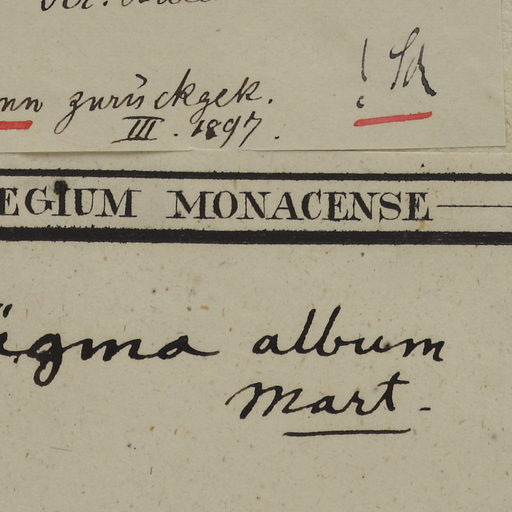 nn zurückgek.
! Sd
III. 1897.
EGIUM MONACENSE
igma album
Mart.